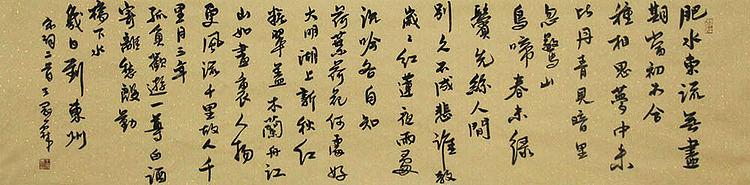 肥水東流無盡
期當初不合
種相思夢中未
比丹青見暗里
忽驚山
鳥啼春未綠
鬢先絲人間
別久不成悲誰教
歲歲紅蓮夜兩處
沉吟各自知
荷葉荷花何處好
大明湖上新秋紅
妝翠蓋木蘭舟江
山如畫裏人物
更風流千里故人千
里月三年
孤負歡遊一尊白酒
寄離愁殷勤
橋下水
幾日到東州
宋詞二首